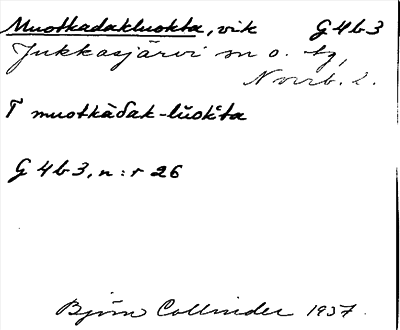 Muotkadakluokta, vik G4b3
Jukkasjärvi sn o. tg,
Norrb. l.
T muotkàδak-lŭok'ta
G 4b3, n:r 26
Björn Collinder 1937.